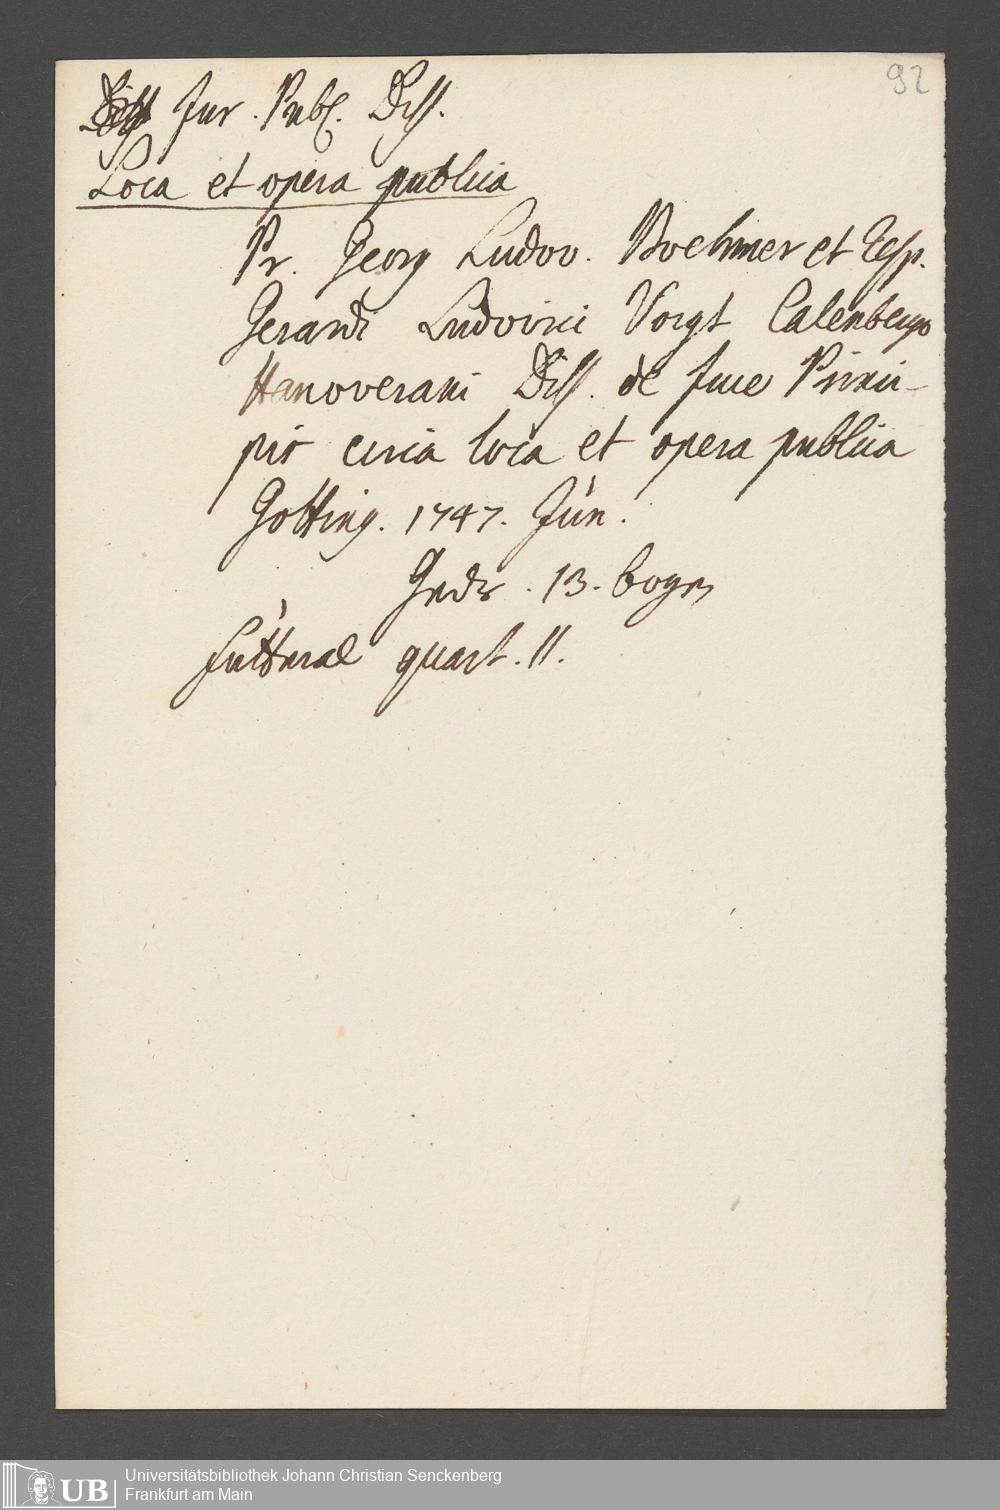 92
Jur. Publ. Diss.
Loca et opera publica
Pr. Georg Ludov. Boehmer et Resp.
Gerardi Ludovici Voigt Calenbergo
Hanoverani Diss. de jure Princi-
pis circa loca et opera publica
Gotting. 1747. Jún.
Gedr. 13. bogen
Futteral quart. 11.
UB
Universitätsbibliothek Johann Christian Senckenberg
Frankfurt am Main